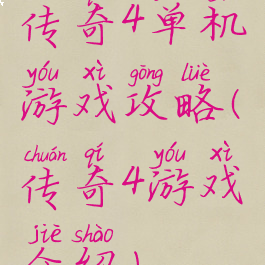 传奇4单机
yóu xì gōng lüè
游戏攻略(
chuán qí yóu xì
传奇4游戏
jiè shào
介绍)